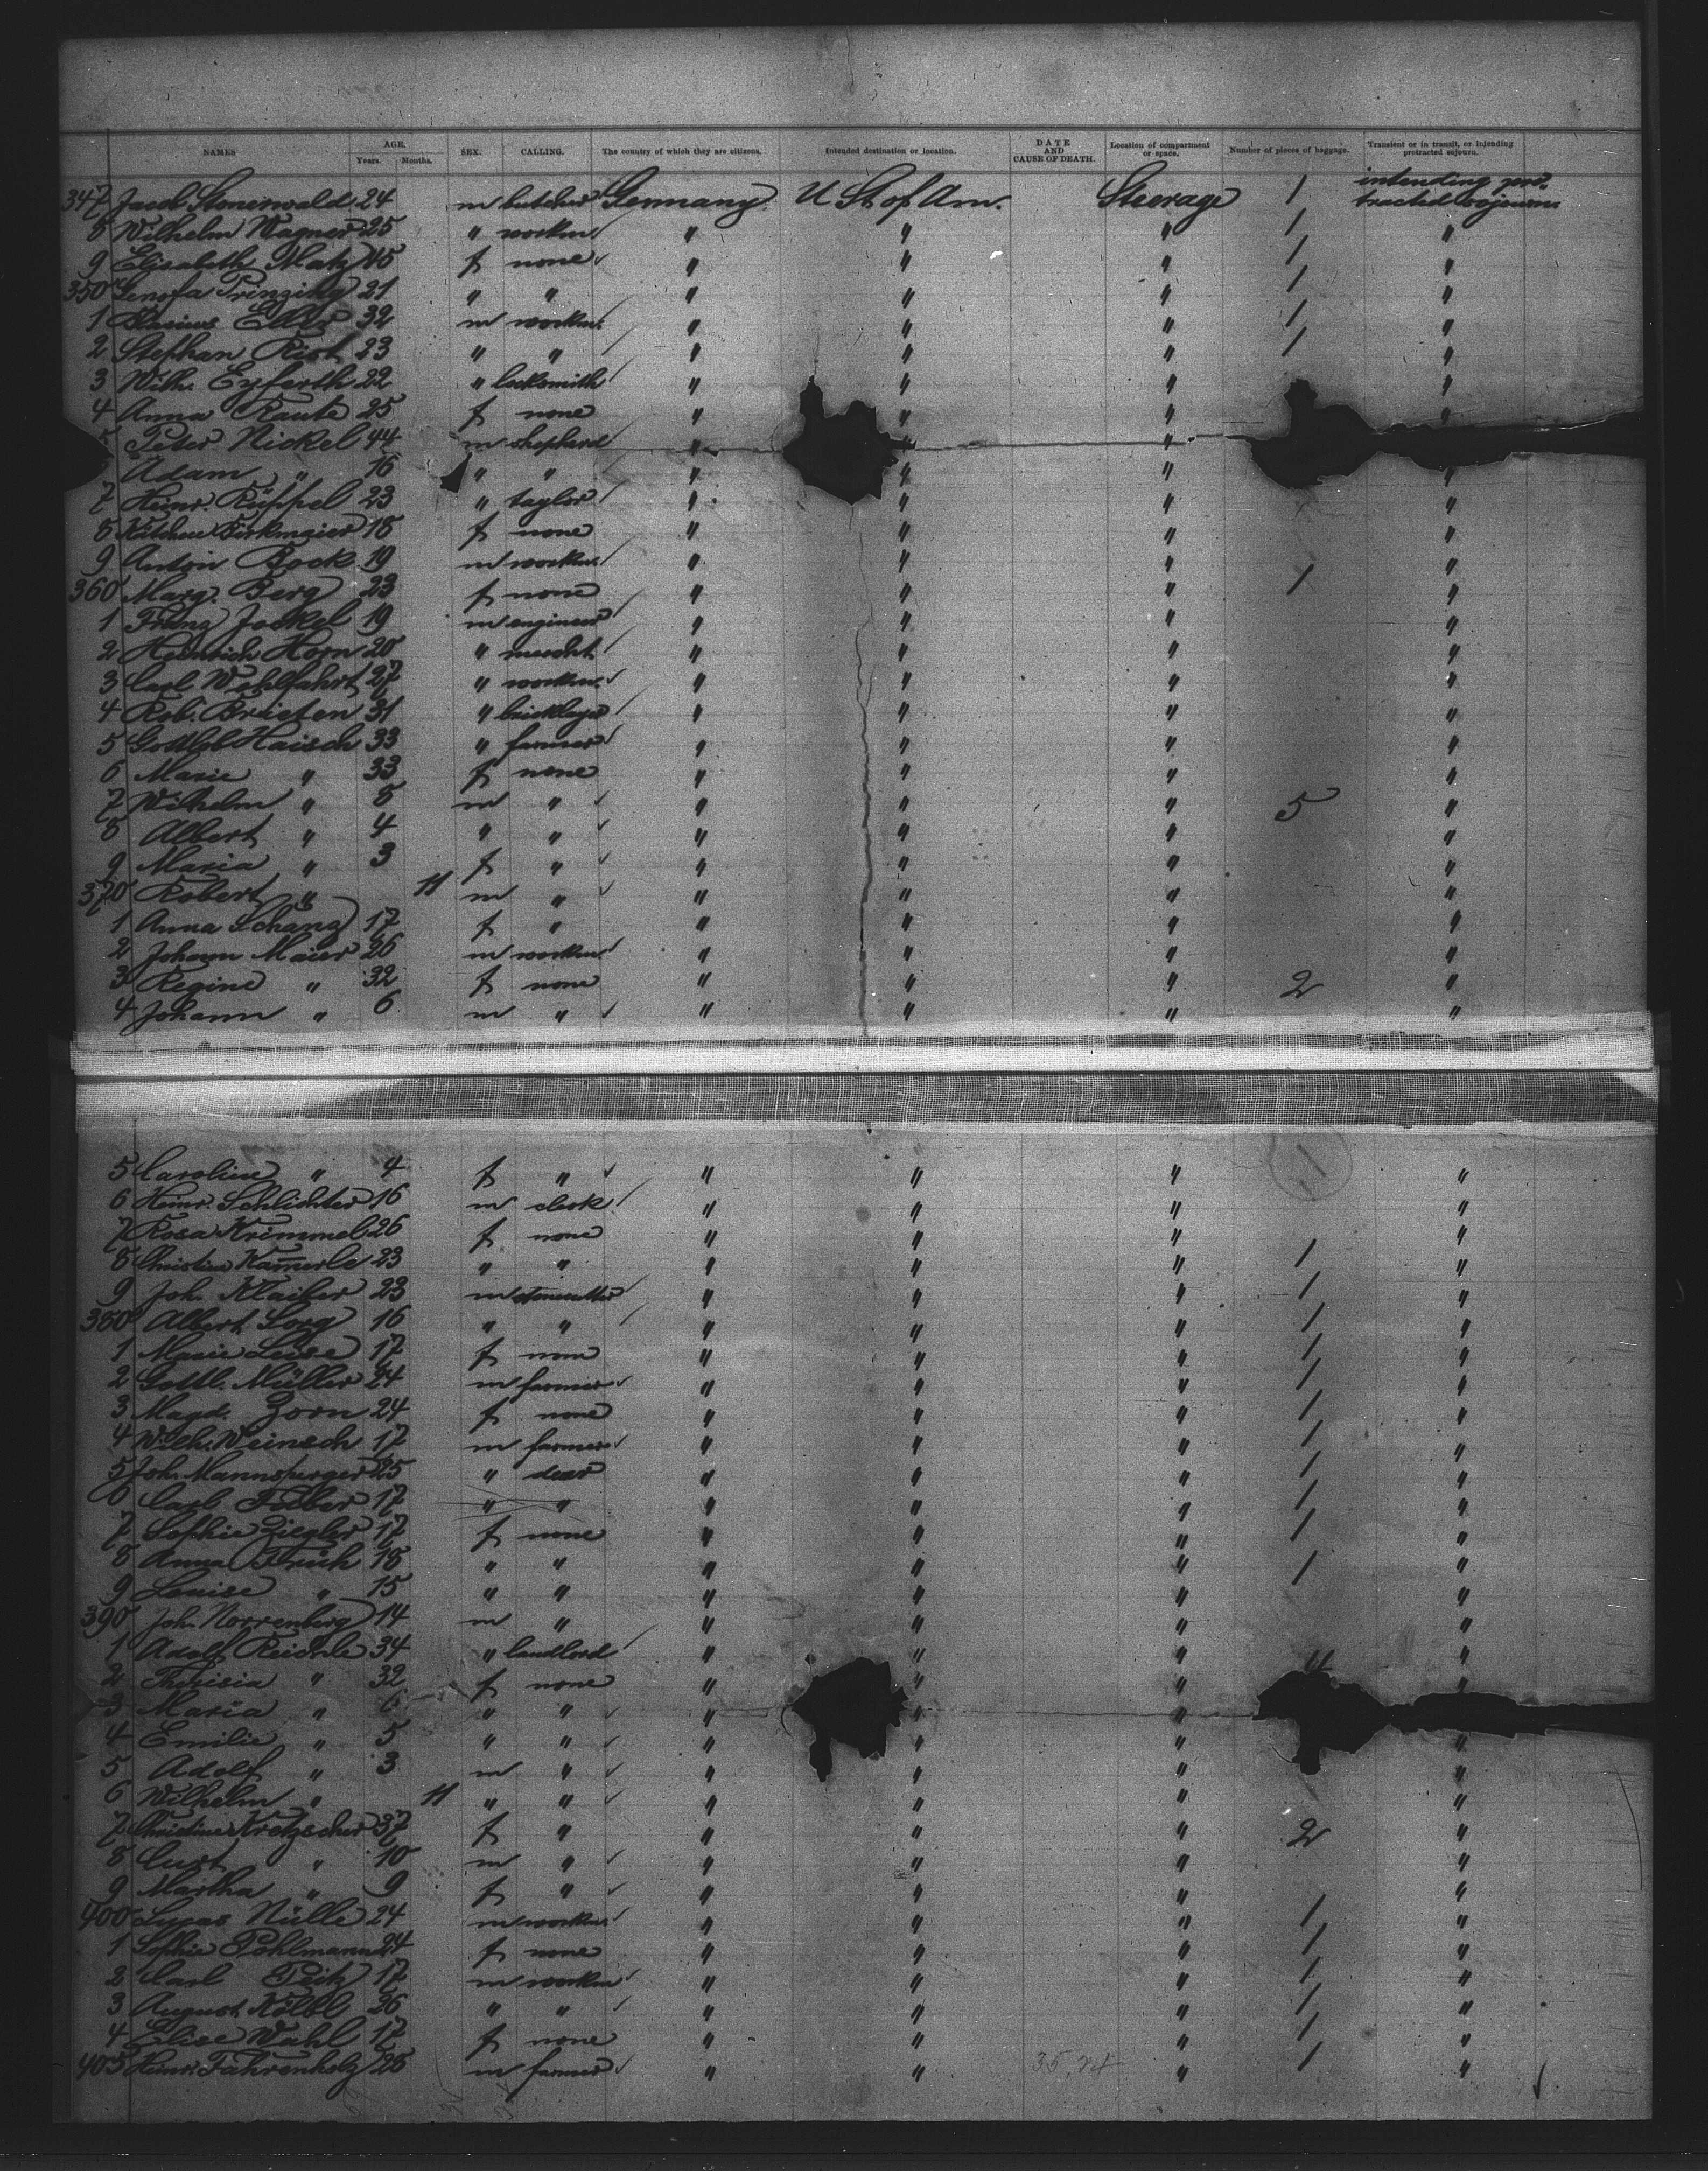 NAMES AGE. Years. Months. SEX. CALLING. The country of which they are citizens. Intended destination or location. DATE AND CAUSE OF DEATH. Location of compartment or space. Number of pieces of baggage. Transient or in transit, or intending protracted sojourn.
347 Jacob Stonerwald 24 m butcher Germany U St of Am. Steerage 1 intending pro-tracted sojourn
8 Wilhelm Wagner 25 " workm " " " 1 "
9 Elisabeth Matz 45 f none " " " 1 "
350 Genofa Prinzing 21 " " " " " 1 "
1 Blasius 32 m workm. " " " 1 "
2 Stephan Rist 23 " " " " " 1 "
3 Wilh. Eyferth 22 " locksmith " " " "
4 Anna Raute 25 f none " " " "
5 Peter Nickel 44 m shepherd " " "
Adam " 16 " " " " " "
7 Heinr. Rüppel 23 " taylor " " " "
8 Kätchen Birkmaier 18 f none " " " "
9 Anton Bock 19 m workm. " " " "
360 Marg. Berg 23 f none " " " 1 "
1 Franz Jockel 19 m engineer " " " "
2 Heinrich Horn 20 " mercht. " " " "
3 Carl Wohlfahrt 27 " workm. " " " "
4 Rob. Brieten 31 " bricklayer " " " "
5 Gottlob Haisch 33 " farmer " " " "
6 Marie " 33 f none " " " "
7 Wilhelm " 8 m " " " " 5 "
8 Albert " 4 " " " " " "
9 Maria " 3 f " " " " "
370 Robert " 11 m " " " " "
1 Anna Schanz 17 f " " " " "
2 Johann Maier 26 m workm. " " " "
3 Regine " 32 f none " " " 2 "
4 Johann " 6 m " " " " "
5 Caroline " 4 f " " " " "
6 Heinr. Schlichter 16 m clerk " " " "
7 Rosa Krimmel 26 f none " " " "
8 Christine Kamerle 23 " " " " " 1 "
9 Joh. Klaiber 23 m stonecutter " " " 1 "
380 Albert Sorg 16 " " " " " 1 "
1 Marie Luise 17 f none " " " 1 "
2 Gottl. Müller 24 m farmer " " " 1 "
3 Magd. Zorn 24 f none " " " 1 "
4 Wilh. Weinsch 17 m farmer " " " 1 "
5 Joh. Mannsperger 25 " " " " 1 "
6 Carl 17 " " " " " 1 "
7 Sophie Ziegler 17 f none " " " 1 "
8 Anna Früh 18 " " " " " 1 "
9 Louise " 15 " " " " " "
390 Joh. Norrenberg 14 m " " " " "
1 Adolf Reichle 34 " landlord " " " "
2 Theresia " 32 f none " " " 4 "
3 Maria " 6 " " " " "
4 Emilie " 5 " " " " " "
5 Adolf " 3 m " " " " "
6 Wilhelm " 11 " " " " " "
7 Christine Kretzscher 37 f " " " " 2 "
8 Curt " 10 m " " " " "
9 Martha " 9 f " " " " "
400 Lucas Nülle 24 m workm. " " " 1 "
1 Sophie Pohlmann 24 f none " " " 1 "
2 Carl Peitz 17 m workm " " " 1 "
3 August Kölbl 26 " " " " " 1 "
4 Elise Wahl 17 f none " " " 1 "
405 Heinr. Fahrenholz 26 m farmer " " " 1 "